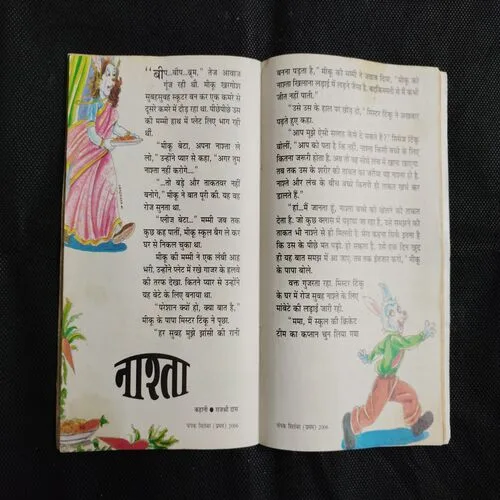 “बीप...बीप...बूम,” तेज आवाज
गूंज रही थी. मीकू खरगोश
सुबहसुबह स्कूटर बन कर एक कमरे से
दूसरे कमरे में दौड़ रहा था. पीछेपीछे उस
की मम्मी हाथ में प्लेट लिए भाग रही
थीं.
“मीकू बेटा, अपना नाश्ता ले
लो,” उन्होंने प्यार से कहा, “अगर तुम
नाश्ता नहीं करोगे...”
“...तो बड़े और ताकतवर नहीं
बनोगे,” मीकू ने बात पूरी की. यह वह
रोज सुनता था.
“प्लीज बेटा...” मम्मी जब तक
कुछ कह पातीं, मीकू स्कूल बैग ले कर
घर से निकल चुका था.
मीकू की मम्मी ने एक लंबी आह
भरी, उन्होंने प्लेट में रखे गाजर के हलवे
की तरफ देखा. कितने प्यार से उन्होंने
यह बेटे के लिए बनाया था.
“परेशान क्यों हो, क्या बात है,”
मीकू के पापा मिस्टर टिंकू ने पूछा.
“हर सुबह मुझे झांसी की रानी
नाश्ता
कहानी ● राजश्री दास
चंपक सितंबर (प्रथम) 2006
बनना पड़ता है,” मीकू की मम्मी ने जवाब दिया, “मीकू को
नाश्ता खिलाना लड़ाई में लड़ने जैसा है. बदकिस्मती से मैं कभी
जीत नहीं पाती.”
“उसे उस के हाल पर छोड़ दो,” मिस्टर टिंकू ने अखबार
पढ़ते हुए कहा.
“आप मुझे ऐसी सलाह कैसे दे सकते हैं?” मिसेज टिंकू
बोलीं, “आप को पता है कि नहीं, नाश्ता किसी बच्चे के लिए
कितना जरूरी होता है. जब तक वह लंच में खाना खाएगा,
तब तक उस के शरीर को ताकत का जरीया यह नाश्ता ही है.
नाश्ते और लंच के बीच बच्चे कितनी ही ताकत खर्च कर
डालते हैं.”
“हां...मैं जानता हूं, नाश्ता बच्चों को खेलने की ताकत
देता है. जो कुछ क्लास में पढ़ाया जा रहा है, उसे समझने की
ताकत भी नाश्ते से ही मिलती है. मेरा कहना सिर्फ इतना है
कि उस के पीछे मत पड़ो. हो सकता है, उसे एक दिन खुद
ही यह बात समझ में आ जाए, तब तक इंतजार करो,” मीकू
के पापा बोले.
वक्त गुजरता रहा. मिस्टर टिंकू
के घर में रोज सुबह नाश्ते के लिए
मांबेटे की लड़ाई जारी रही.
“ममा, मैं स्कूल की क्रिकेट
टीम का कप्तान चुन लिया गया
चंपक सितंबर (प्रथम) 2006